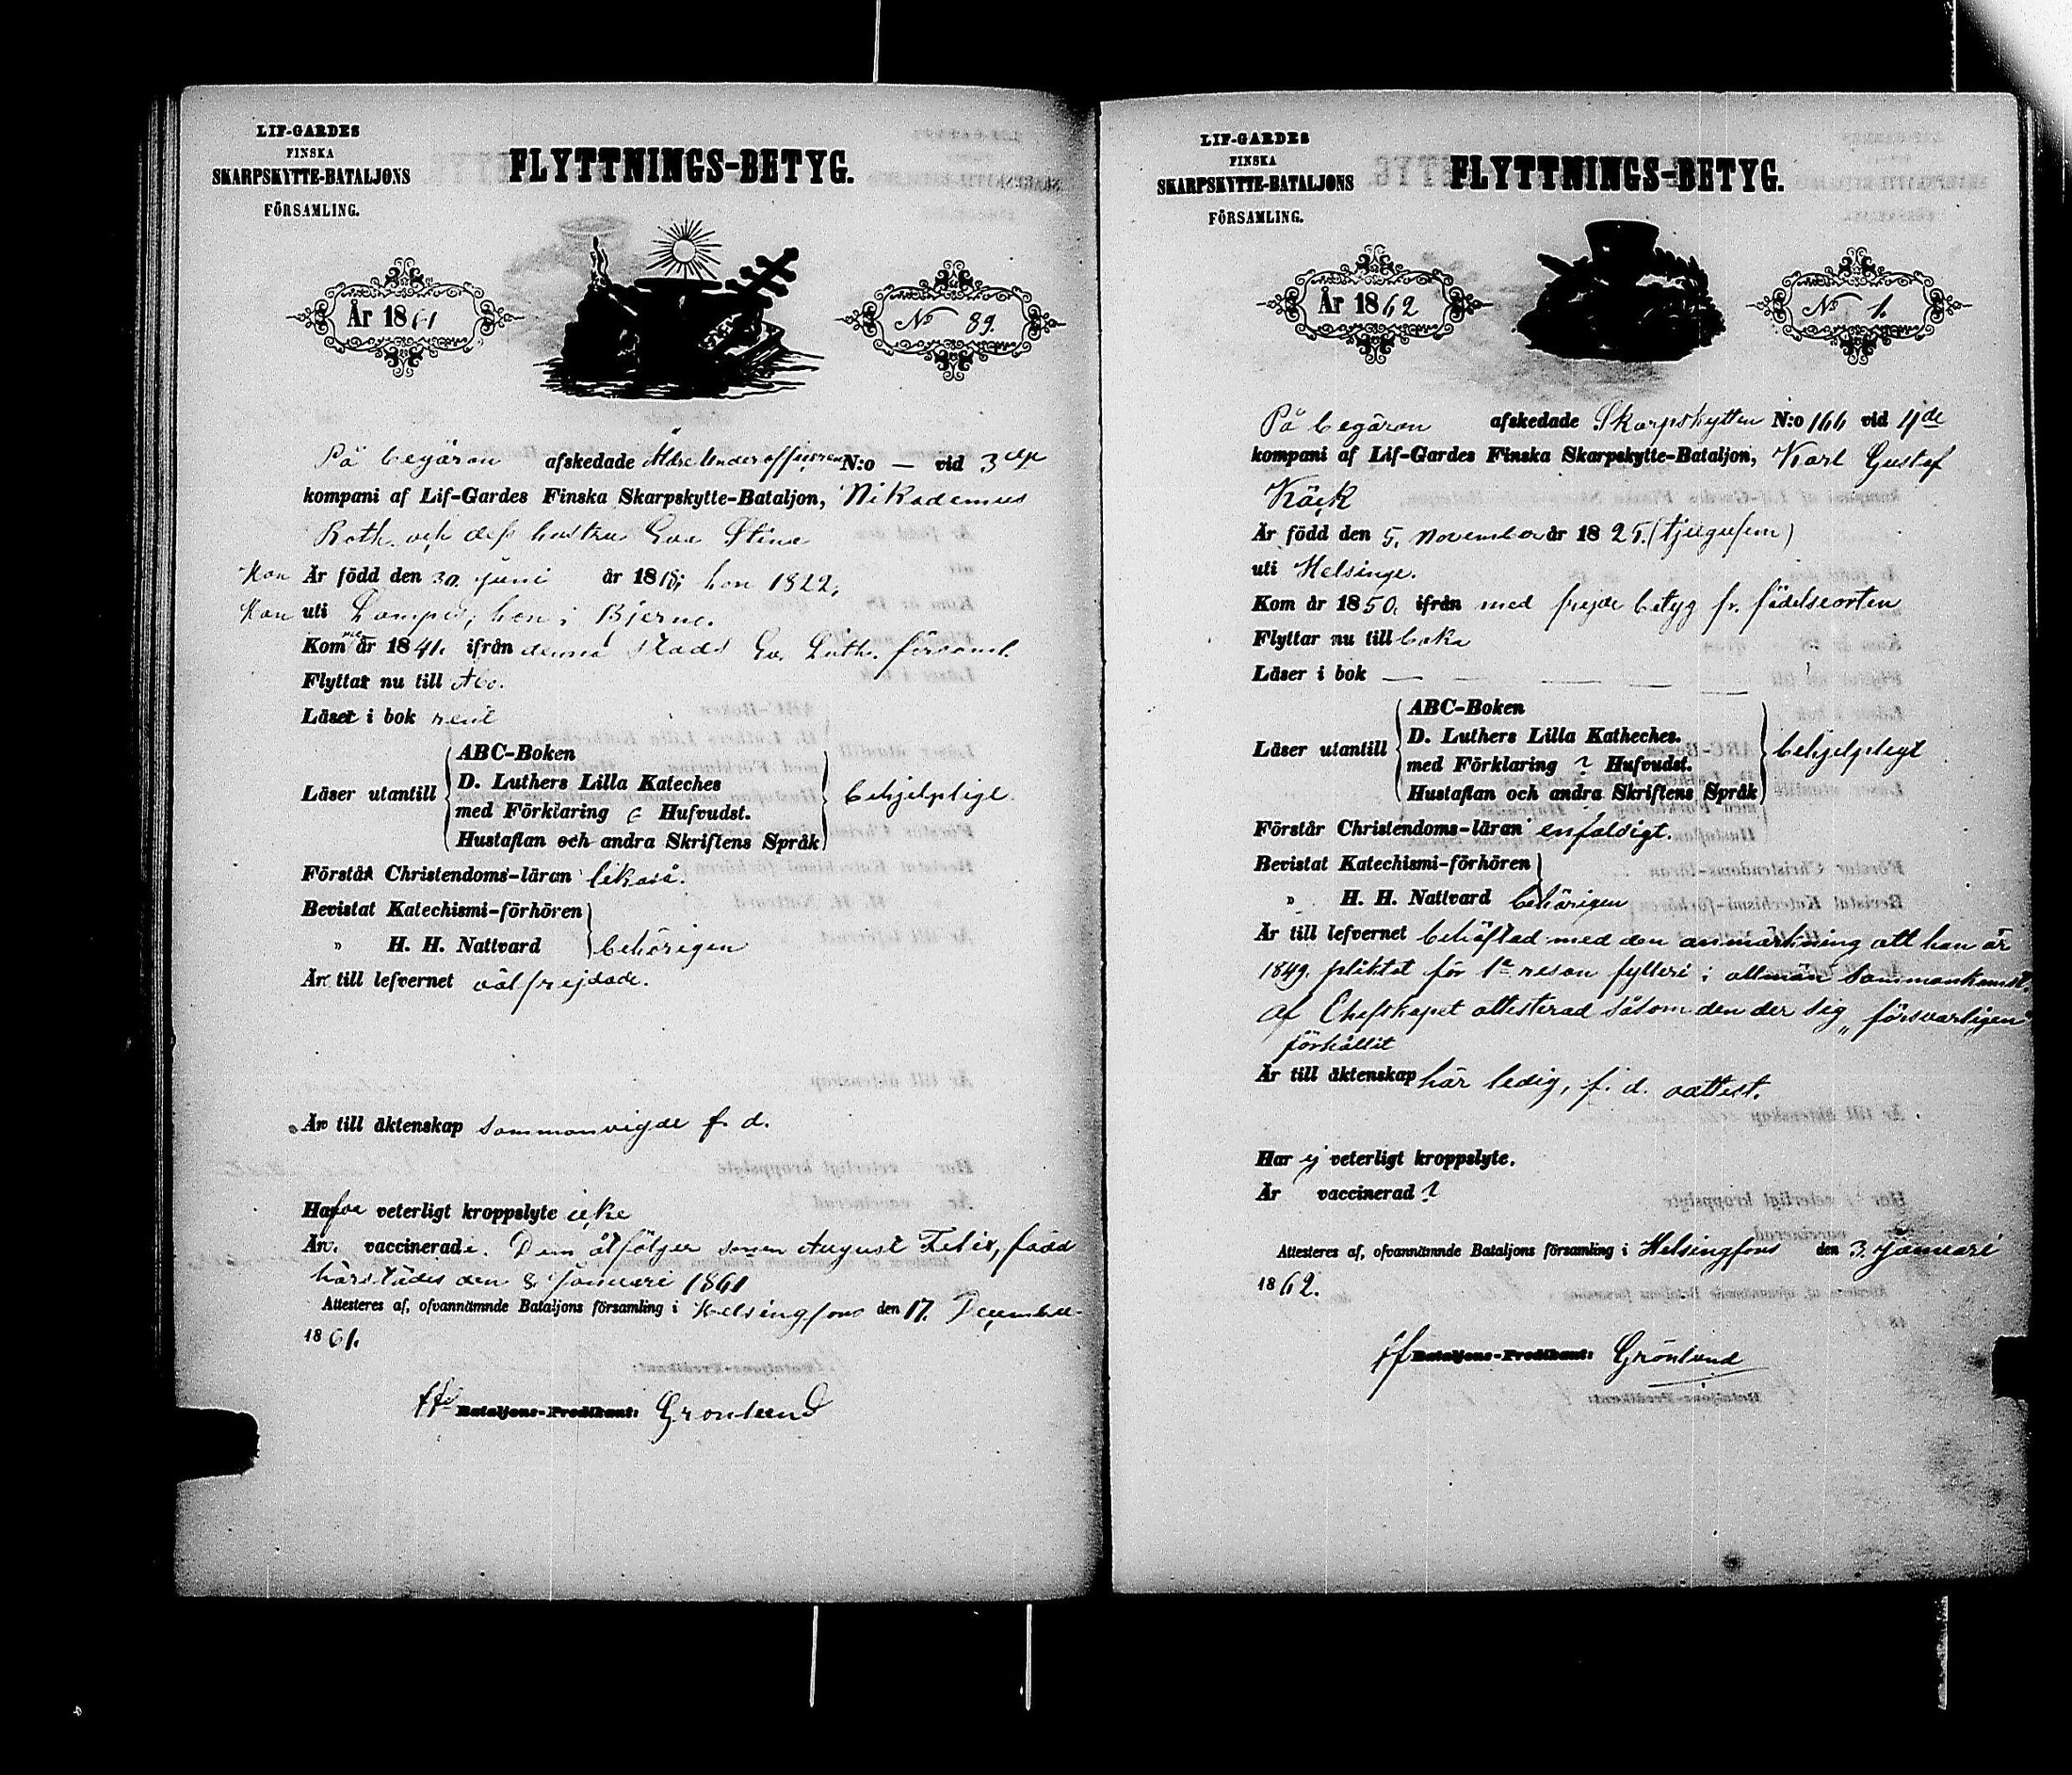 LIF-GARDES
FINSKA
SKARPSKYTTE-BATALJONS
FÖRSAMLING.
FLYTTNINGS-BETYG.
År 1861
No 89.
På begäran afskedade Äldre Underofficeren N:o — vid 3dje
kompani af Lif-Gardes Finska Skarpskytte-Bataljon, Nikodemus
Roth och dess hustru Eva Stina
Han Är född den 30 Juni år 1818; hon 1822;
Han uti Lampis; hon i Bjerno.
Kom år 1841. ifrån denna stads Ev. Luth. församl.
Flyttar nu till Åbo.
Läser i bok rent
Läser utantill
ABC-Boken
D. Luthers Lilla Kateches
med Förklaring Hufvudst.
Hustaflan och andra Skriftens Språk
behjelpligt.
Förstår Christendoms-läran likaså.
Bevistat Katechismi-förhören
„ H. H. Nattvard behörigen
Är till lefvernet välfrejdade.
Är till äktenskap sammanvigde f. d.
Hafva veterligt kroppslyte icke
Är vaccinerade. Dem åtföljer sonen August Felix, född
härstädes den 8 Januari 1861
Attesteres af, ofvannämnde Bataljons församling i Helsingfors den 17. December
1861.
Bataljons-Predikant: Grönlund
LIF-GARDES
FINSKA
SKARPSKYTTE-BATALJONS
FÖRSAMLING.
FLYTTNINGS-BETYG.
År 1862
No 1.
På begäran afskedade Skarpskytten N:o 166 vid 4de
kompani af Lif-Gardes Finska Skarpskytte-Bataljon, Karl Gustaf
Käck
Är född den 5. November år 1825. (tjugufem)
uti Helsinge.
Kom år 1850. ifrån med frejdebetyg fr. födelseorten
Flyttar nu till baka
Läser i bok — — — — —
Läser utantill
ABC-Boken
D. Luthers Lilla Katheches.
med Förklaring ? Hufvudst.
Hustaflan och andra Skriftens Språk
behjelpligt
Förstår Christendoms-läran enfaldigt.
Bevistat Katechismi-förhören
„ H. H. Nattvard behörigen
Är till lefvernet behäftad med den anmärkning att han är
1849. pliktat för 1a resan fylleri i allmän sammankomst.
Af Chefskapet attesterad såsom den der sig „försvarligen"
förhållit
Är till äktenskap här ledig, f. d. oattest.
Har ej veterligt kroppslyte.
Är vaccinerad ?
Attesteres af, ofvannämnde Bataljons församling i Helsingfors den 3. Januari
1862.
Bataljons-Predikant: Grönlund